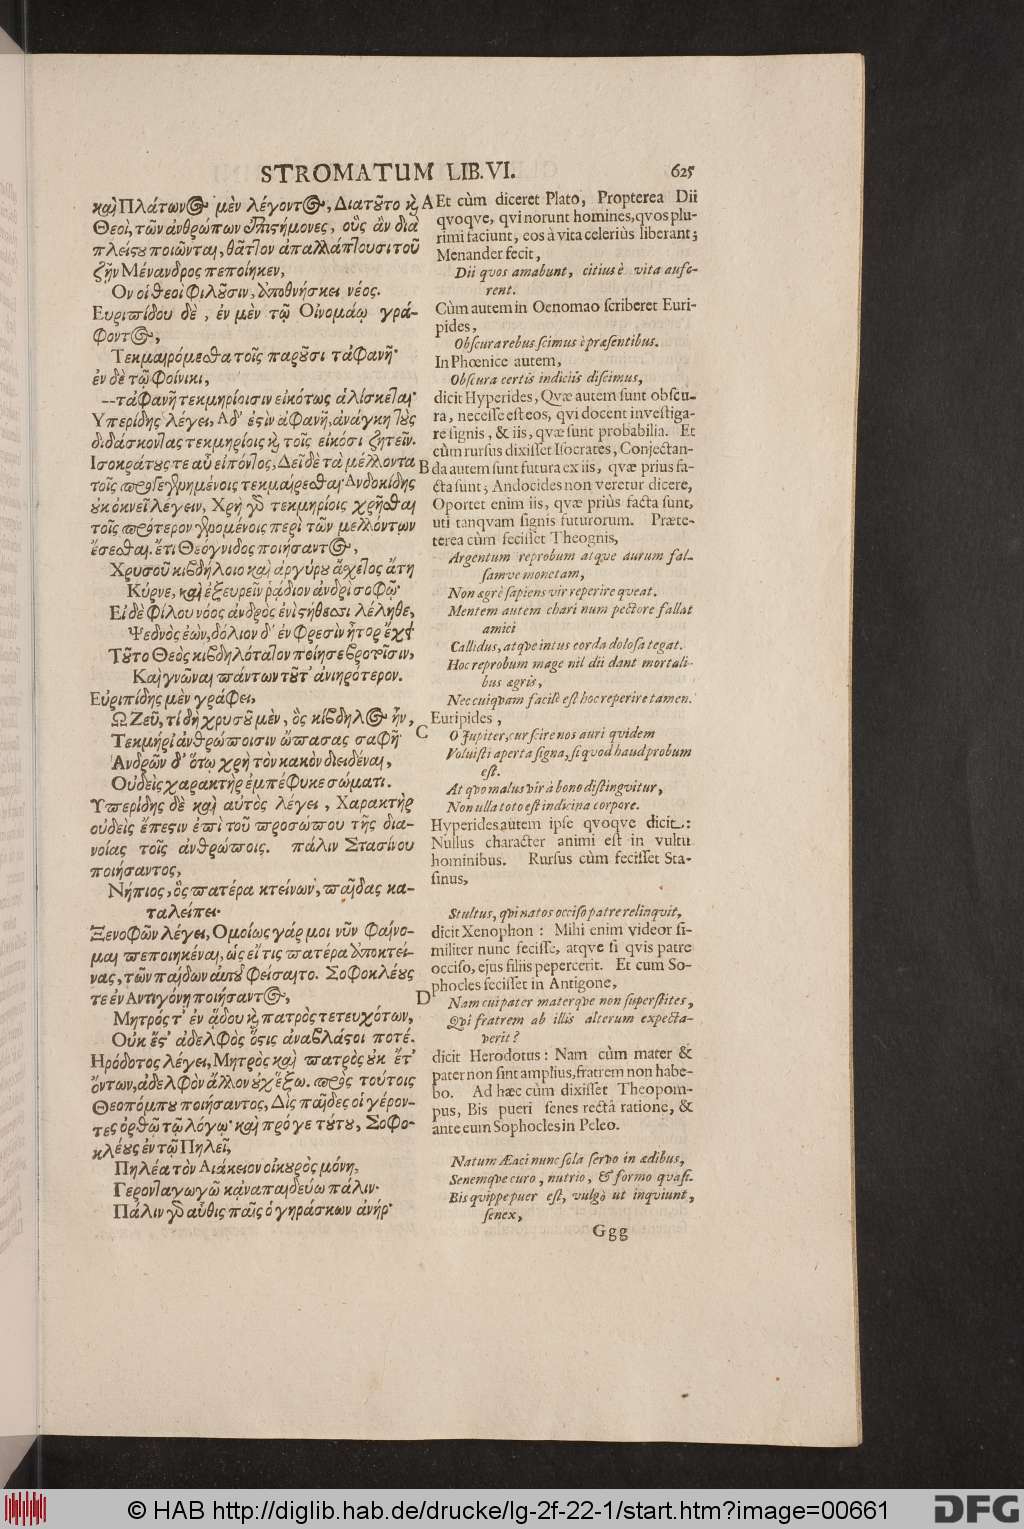 STROMATUM LIB. VI. 625
καὶ Πλάτωνος μὲν λέγοντος, Διατοῦτο καὶ
Θεοὶ, τῶν ἀνθρώπων ἐπιστήμονες, οὓς ἂν διὰ
πλείστου ποιῶνται, θᾶττον ἀπαλλάττουσι τοῦ
ζῇν Μένανδρος πεποίηκεν,
Ον οἱ θεοὶ Φιλοῦσιν, ἀποθνήσκει νέος.
Ευριπίδου δὲ, ἐν μὲν τῷ Οἰνομάῳ γρά-
φοντος,
Τεκμαιρόμεσθα τοῖς παροῦσι τἀφανῆ·
ἐν δὲ τῷ Φοίνικι,
--τἀφανῆ τεκμηρίοισιν εἰκότως ἁλίσκεται·
Υπερίδης λέγει, Αδ᾽ ἐστὶν ἀφανῆ, ἀνάγκη τοὺς
διδάσκοντας τεκμηρίοις καὶ τοῖς εἰκόσι ζητεῖν.
Ισοκράτους τε αὖ εἰπόντος, Δεῖ δὲ τὰ μέλλοντα
τοῖς προγεγενημένοις τεκμαίρεσθαι· Ανδοκίδης
οὐκ ὀκνεῖ λέγειν, Χρὴ γὰρ τεκμηρίοις χρῆσθαι
τοῖς πρότερον γενομένοις περὶ τῶν μελλόντων
ἔσεσθαι. ἔτι Θεόγνιδος ποιήσαντος,
Χρυσοῦ κιβδήλοιο καὶ ἀργύρου ἄσχετος ἄτη
Κύρνε, καὶ ἐξευρεῖν ῥᾴδιον ἀνδρὶ σοφῷ·
Εἰ δὲ Φίλου νόος ἀνδρὸς ἐνὶ στήθεσσι λέληθε,
Ψεδνὸς ἐὼν, δόλιον δ᾽ ἐν Φρεσὶν ἦτορ ἔχει
Τοῦτο Θεὸς κιβδηλότατον ποίησε βροτοῖσιν,
Καὶ γνῶναι πάντων τοῦτ᾽ ἀνιηρότερον.
Εὐριπίδης μὲν γράφει,
Ω Ζεῦ, τί δὴ χρυσοῦ μὲν, ὃς κίβδηλος ἦν,
Τεκμήρι᾽ ἀνθρώποισιν ὤπασας σαφῆ·
Ἀνδρῶν δ᾽ ὅτῳ χρὴ τὸν κακὸν διειδέναι,
Οὐδεὶς χαρακτὴρ ἐμπέφυκε σώματι.
Υπερίδης δὲ καὶ αὐτὸς λέγει, Χαρακτὴρ
οὐδεὶς ἔπεστιν ἐπὶ τοῦ προσώπου τῆς δια-
νοίας τοῖς ἀνθρώποις. πάλιν Στασίνου
ποιήσαντος,
Νήπιος, ὃς πατέρα κτείνων, παῖδας κα-
ταλείπει·
Ξενοφῶν λέγει, Ομοίως γάρ μοι νῦν Φαίνο-
μαι πεποιηκέναι, ὡς εἴ τις πατέρα ἀποκτεί-
νας, τῶν παίδων αὐτοῦ Φείσαιτο. Σοφοκλέους
τε ἐν Αντιγόνῃ ποιήσαντος,
Μητρός τ᾽ ἐν ᾅδου καὶ πατρὸς τετευχότων,
Οὐκ ἔστ᾽ ἀδελφὸς ὅστις ἀναβλάστοι ποτέ.
Ηρόδοτος λέγει, Μητρὸς καὶ πατρὸς οὐκ ἔτ᾽
ὄντων, ἀδελφὸν ἄλλον οὐχ ἕξω. πρὸς τούτοις
Θεοπόμπου ποιήσαντος, Δὶς παῖδες οἱ γέρον-
τες ὀρθῷ τῷ λόγῳ· καὶ πρό γε τούτου, Σοφο-
κλέους ἐν τῷ Πηλεῖ,
Πηλέα τὸν Αιάκειον οἰκουρὸς μόνη,
Γεροντιαγωγῶ κἀναπαιδεύω πάλιν·
Πάλιν γὰρ αὖθις παῖς ὁ γηράσκων ἀνήρ·
A
B
C
D
Et cùm diceret Plato, Propterea Dii
qvoqve, qvi norunt homines, qvos plu-
rimi faciunt, eos à vita celeriùs liberant;
Menander fecit,
Dii qvos amabunt, citius è vita aufe-
rent.
Cùm autem in Oenomao scriberet Euri-
pides,
Obscura rebus scimus è præsentibus.
In Phœnice autem,
Obscura certis indiciis discimus,
dicit Hyperides, Qvæ autem sunt obscu-
ra, necesse est eos, qvi docent investiga-
re signis, & iis, qvæ sunt probabilia. Et
cùm rursus dixisset Isocrates, Conjectan-
da autem sunt futura ex iis, qvæ prius fa-
cta sunt; Andocides non veretur dicere,
Oportet enim iis, qvæ priùs facta sunt,
uti tanqvam signis futurorum. Præte-
terea cùm fecisset Theognis,
Argentum reprobum atqve aurum fal-
samve monetam,
Non ægrè sapiens vir reperire qveat.
Mentem autem chari num pectore fallat
amici
Callidus, atqve intus corda dolosa tegat.
Hoc reprobum mage nil dii dant mortali-
bus ægris,
Nec cuiqvam facile est hoc reperire tamen.
Euripides,
O Jupiter, cur scire nos auri qvidem
Voluisti aperta signa, si qvod haud probum
est.
At qvo malus vir à bono distingvitur,
Non ulla toto est indicina corpore.
Hyperides autem ipse qvoqve dicit:
Nullus character animi est in vultu
hominibus. Rursus cùm fecisset Sta-
sinus,
Stultus, qvi natos occiso patre relinqvit,
dicit Xenophon: Mihi enim videor si-
militer nunc fecisse, atqve si qvis patre
occiso, ejus filiis pepercerit. Et cum So-
phocles fecisset in Antigone,
Nam cui pater materqve non superstites,
Qvi fratrem ab illis alterum expecta-
verit?
dicit Herodotus: Nam cùm mater &
pater non sint amplius, fratrem non habe-
bo. Ad hæc cùm dixisset Theopom-
pus, Bis pueri senes rectâ ratione, &
ante eum Sophocles in Peleo.
Natum Æaci nunc sola servo in ædibus,
Senemqve curo, nutrio, & formo qvasi.
Bis qvippe puer est, vulgò ut inqviunt,
senex,
Ggg
© HAB http://diglib.hab.de/drucke/lg-2f-22-1/start.htm?image=00661
DFG